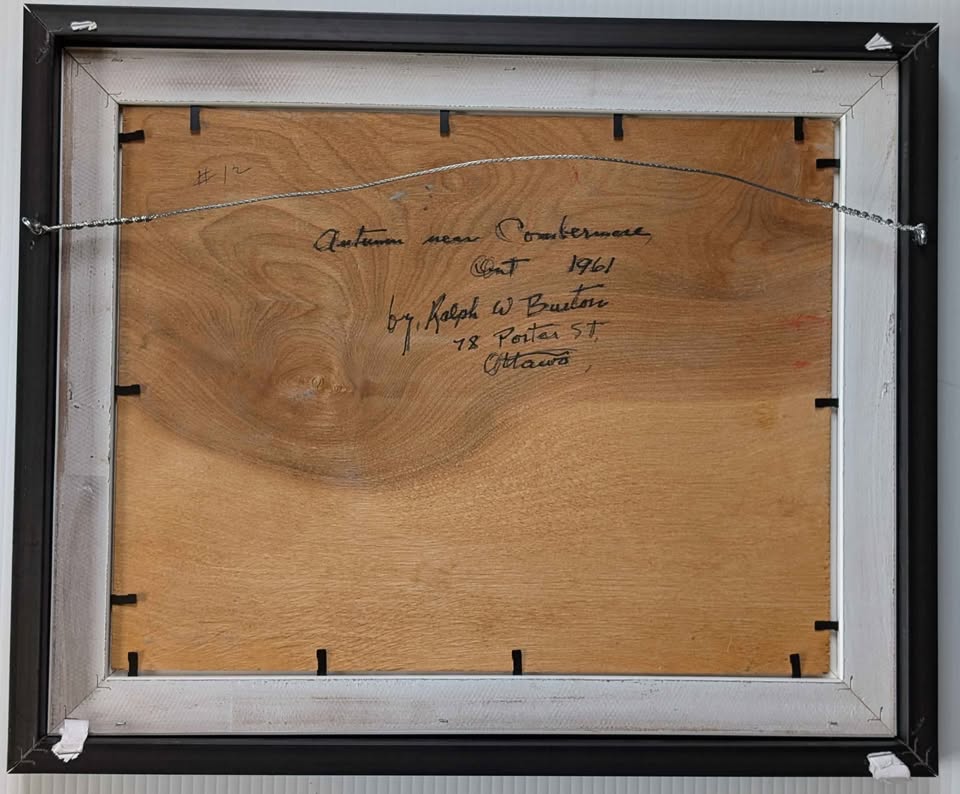 #12
Autumn near Combermere,
Ont 1961
by, Ralph W Burton
78 Porter St,
Ottawa,